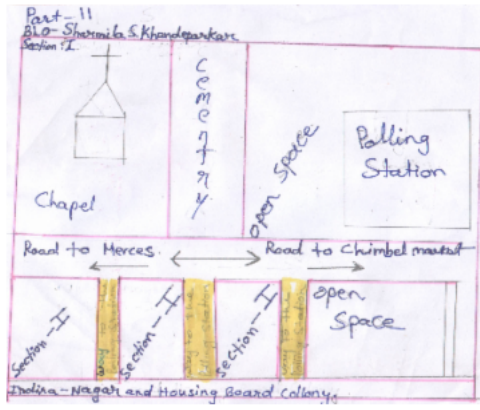 Part-11
BLO-Sharmila S. Khandeparkar
Section: I.
Cemetry
Open Space
Polling
Station
Chapel
Road to Merces.
Road to Chimbel market
Section-I
way to the
Section-I
way to the
Section-I
way to the
Open
Space
Indira-Nagar and Housing Board Collony.